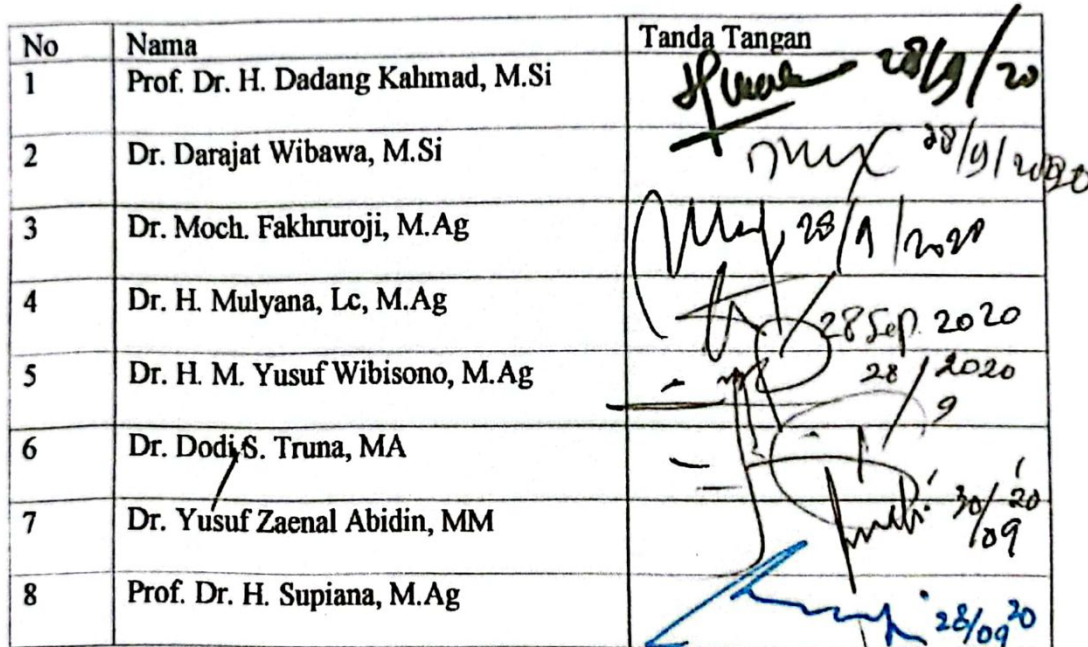 No Nama Tanda Tangan
1 Prof. Dr. H. Dadang Kahmad, M.Si 28/9/20
2 Dr. Darajat Wibawa, M.Si 28/9/2020
3 Dr. Moch. Fakhruroji, M.Ag 28/9/2020
4 Dr. H. Mulyana, Lc, M.Ag 28 Sep. 2020
5 Dr. H. M. Yusuf Wibisono, M.Ag 28/9 2020
6 Dr. Dodi S. Truna, MA
7 Dr. Yusuf Zaenal Abidin, MM 30/09 '20
8 Prof. Dr. H. Supiana, M.Ag 28/09 20